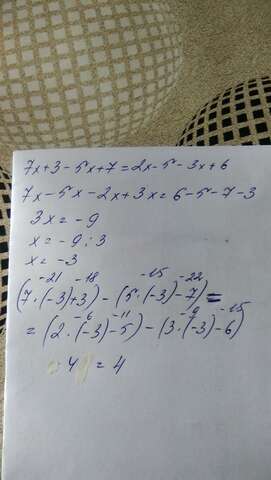 7x+3-5x+7=2x-5-3x+6
7x-5x-2x+3x=6-5-7-3
3x=-9
x=-9:3
x=-3
-21 -18 -15 -22
(7·(-3)+3)-(5·(-3)-7)=
-6 -11 -9 -15
=(2·(-3)-5)-(3·(-3)-6)
4=4